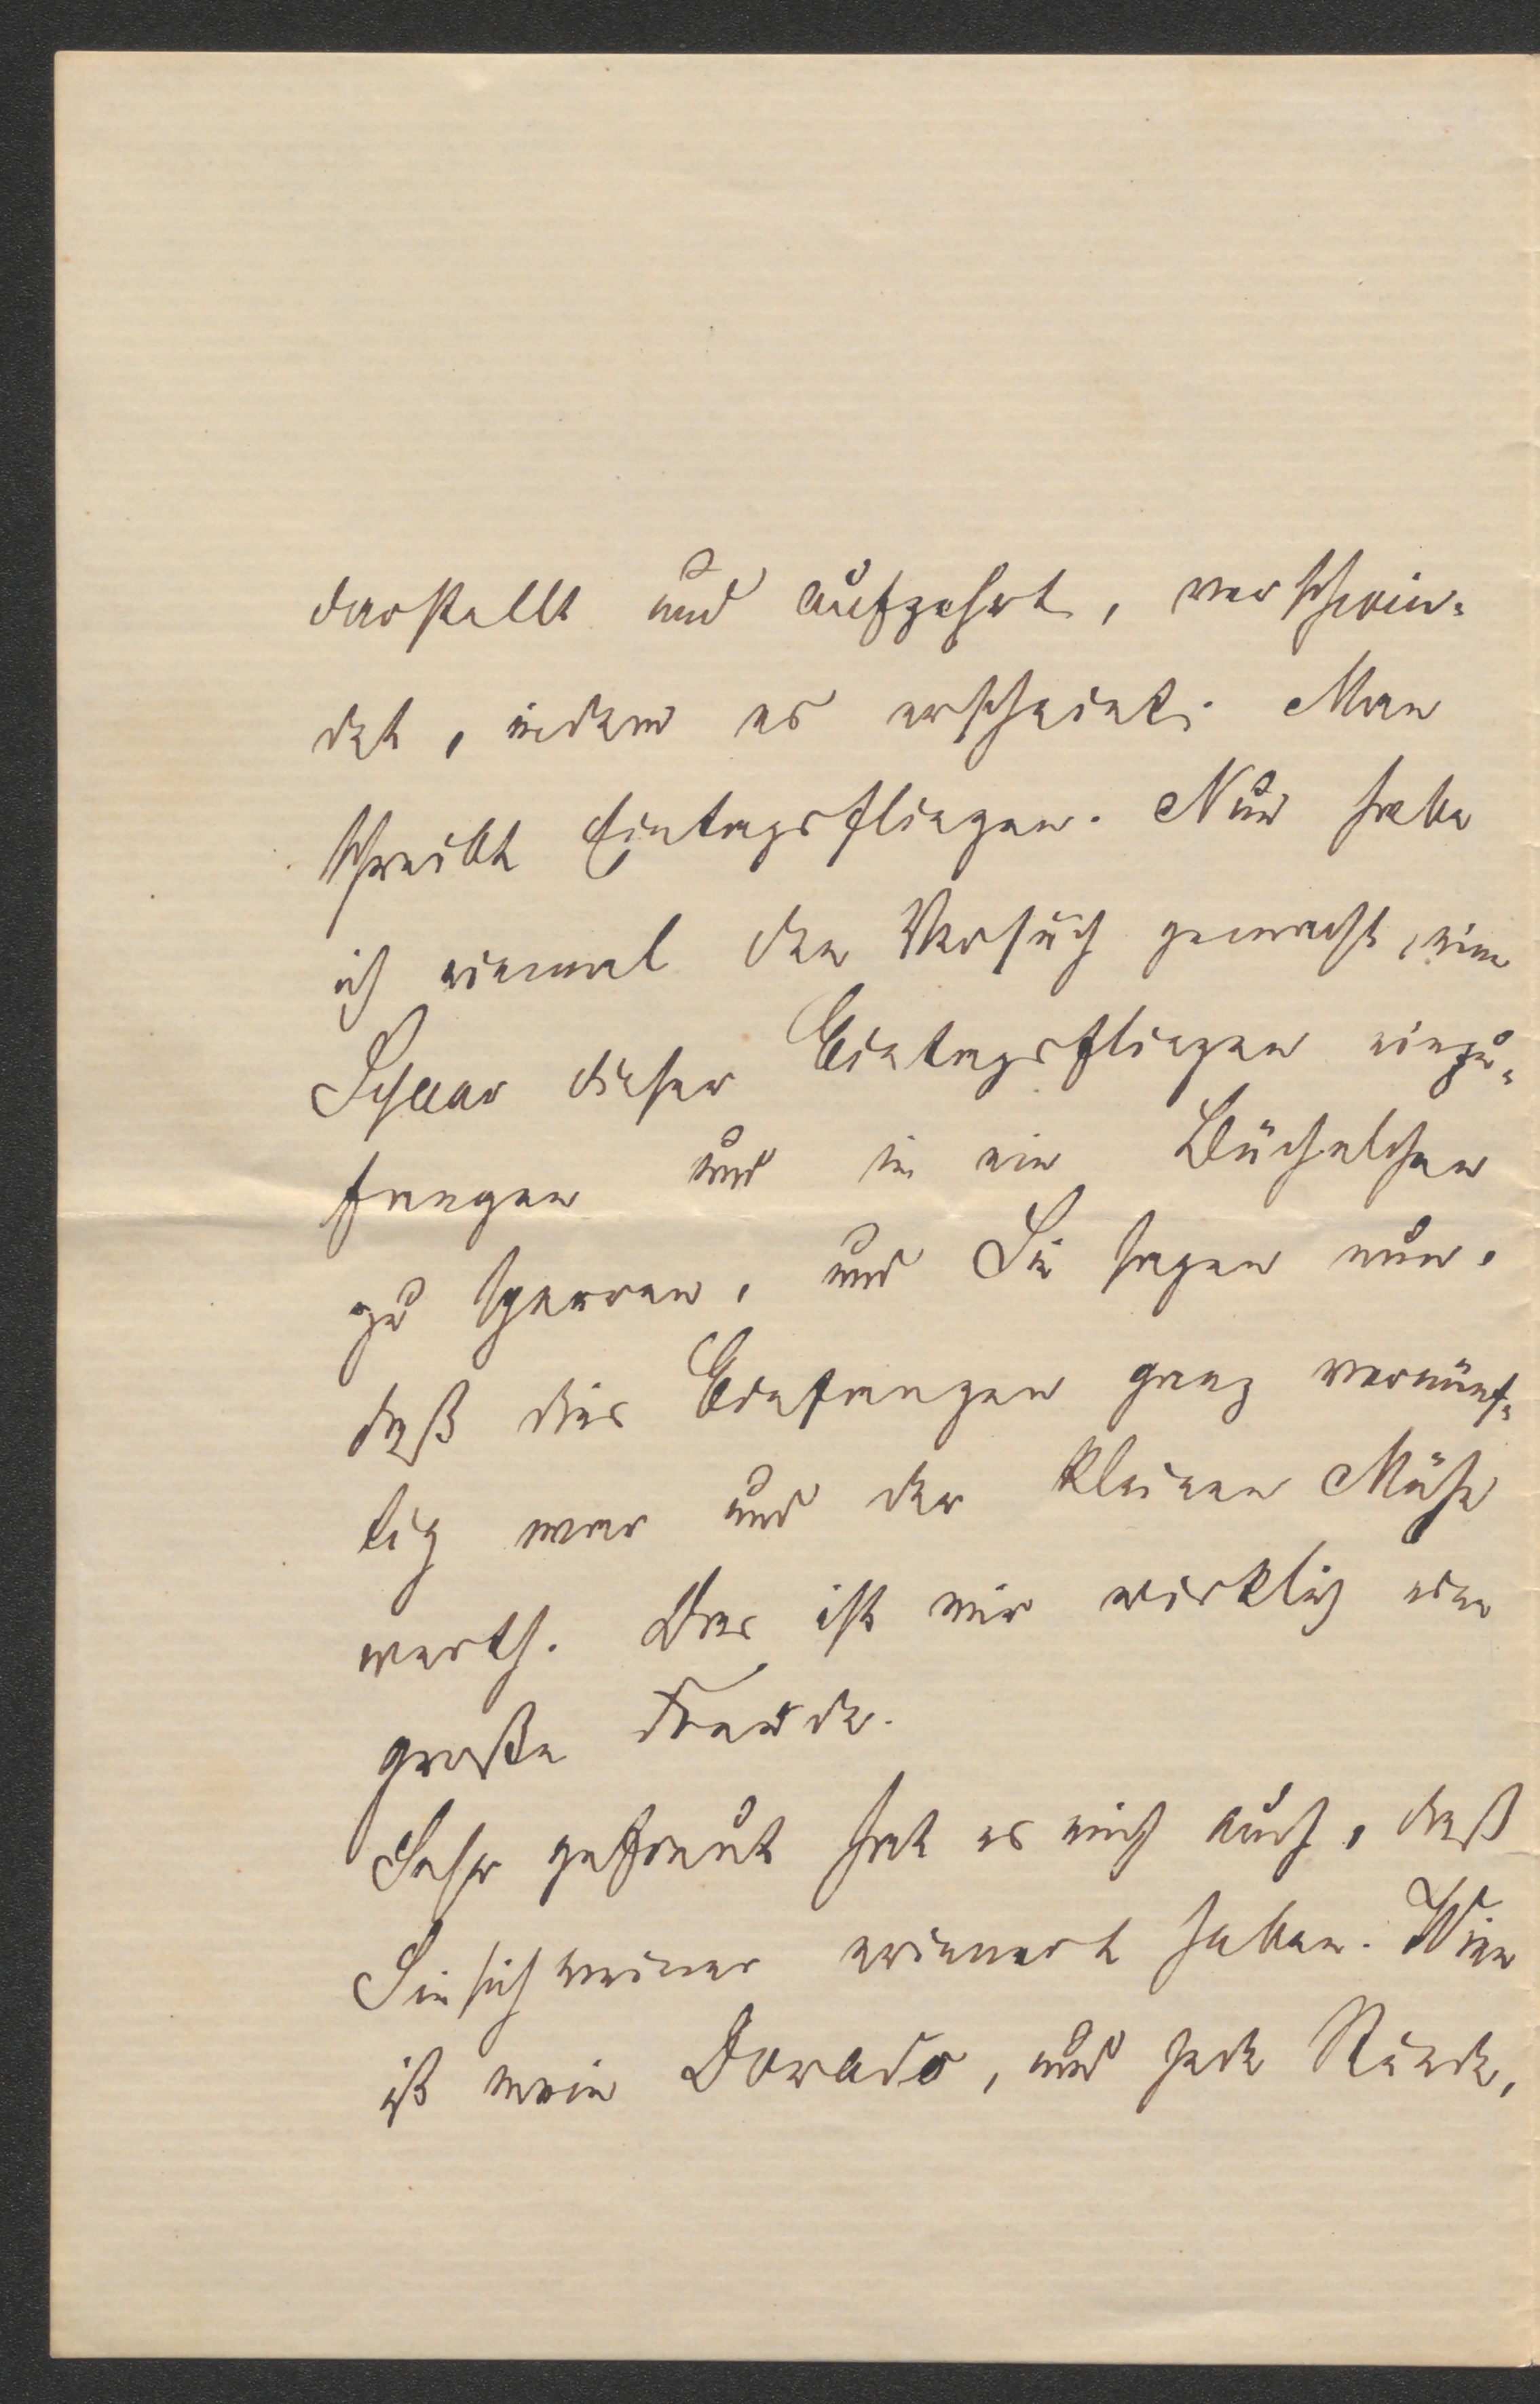 darstellt und aufzehrt, verschwin-
det, indem es erscheint. Man
schreibt Eintagsfliegen. Nun habe
ich einmal den Versuch gemacht, eine
Schaar dieser Eintagsfliegen einzu-
fangen und in ein Büchelchen
zu sperren, und Sie sagen nun,
daß dies Einfangen ganz vernünf-
tig war und der kleinen Mühe
werth. Das ist mir wirklich eine
große Freude.
Sehr gefreut hat es mich auch, daß
Sie sich meiner erinnert haben. Wien
ist mein Dorado, und jede Stunde,